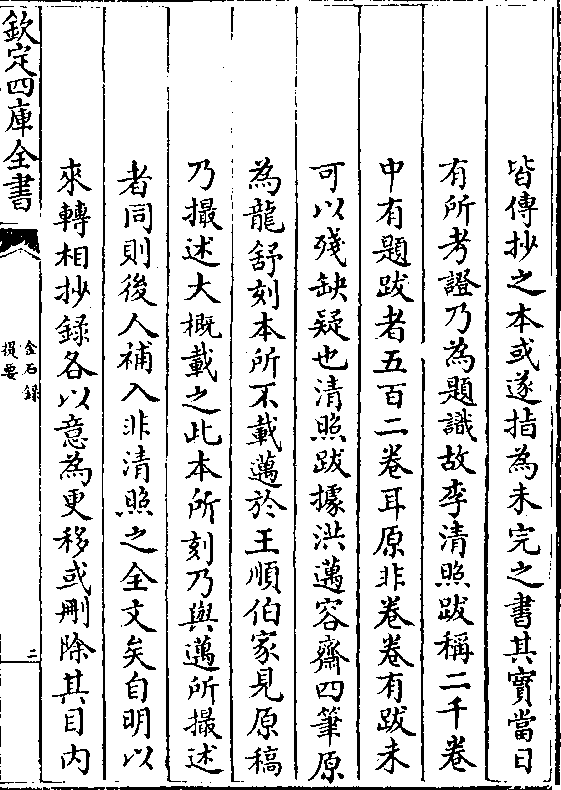 皆傳抄之本或遂指為未完之書其實當日
有所考證乃為題識故李清照跋稱二千卷
中有題跋者五百二卷耳原非卷卷有跋未
可以殘缺疑也清照跋據洪邁容齋四筆原
為龍舒刻本所不載邁於王順伯家見原稿
乃撮述大概載之此本所刻乃與邁所撮述
者同則後人補入非清照之全文矣自明以
來轉相抄錄各以意為更移或刪除其目內
欽定四庫全書
金石錄
提要
三